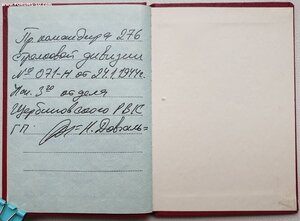 Пр. командира 276
Стрелковой дивизии
№ 071-Н от 24.1.1944 г.
Нач. 3го отдела
Щербиновского РВК
ГП. Н. Довгаль